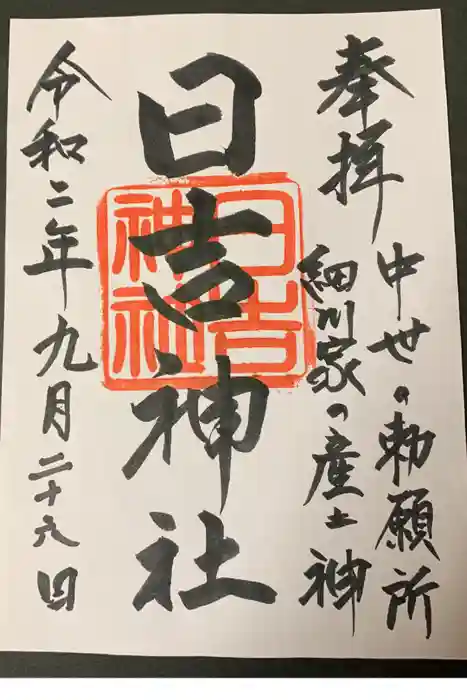 奉拝
中世の勅願所
細川家の産土神
日吉神社
日吉
神社
令和二年九月二十六日